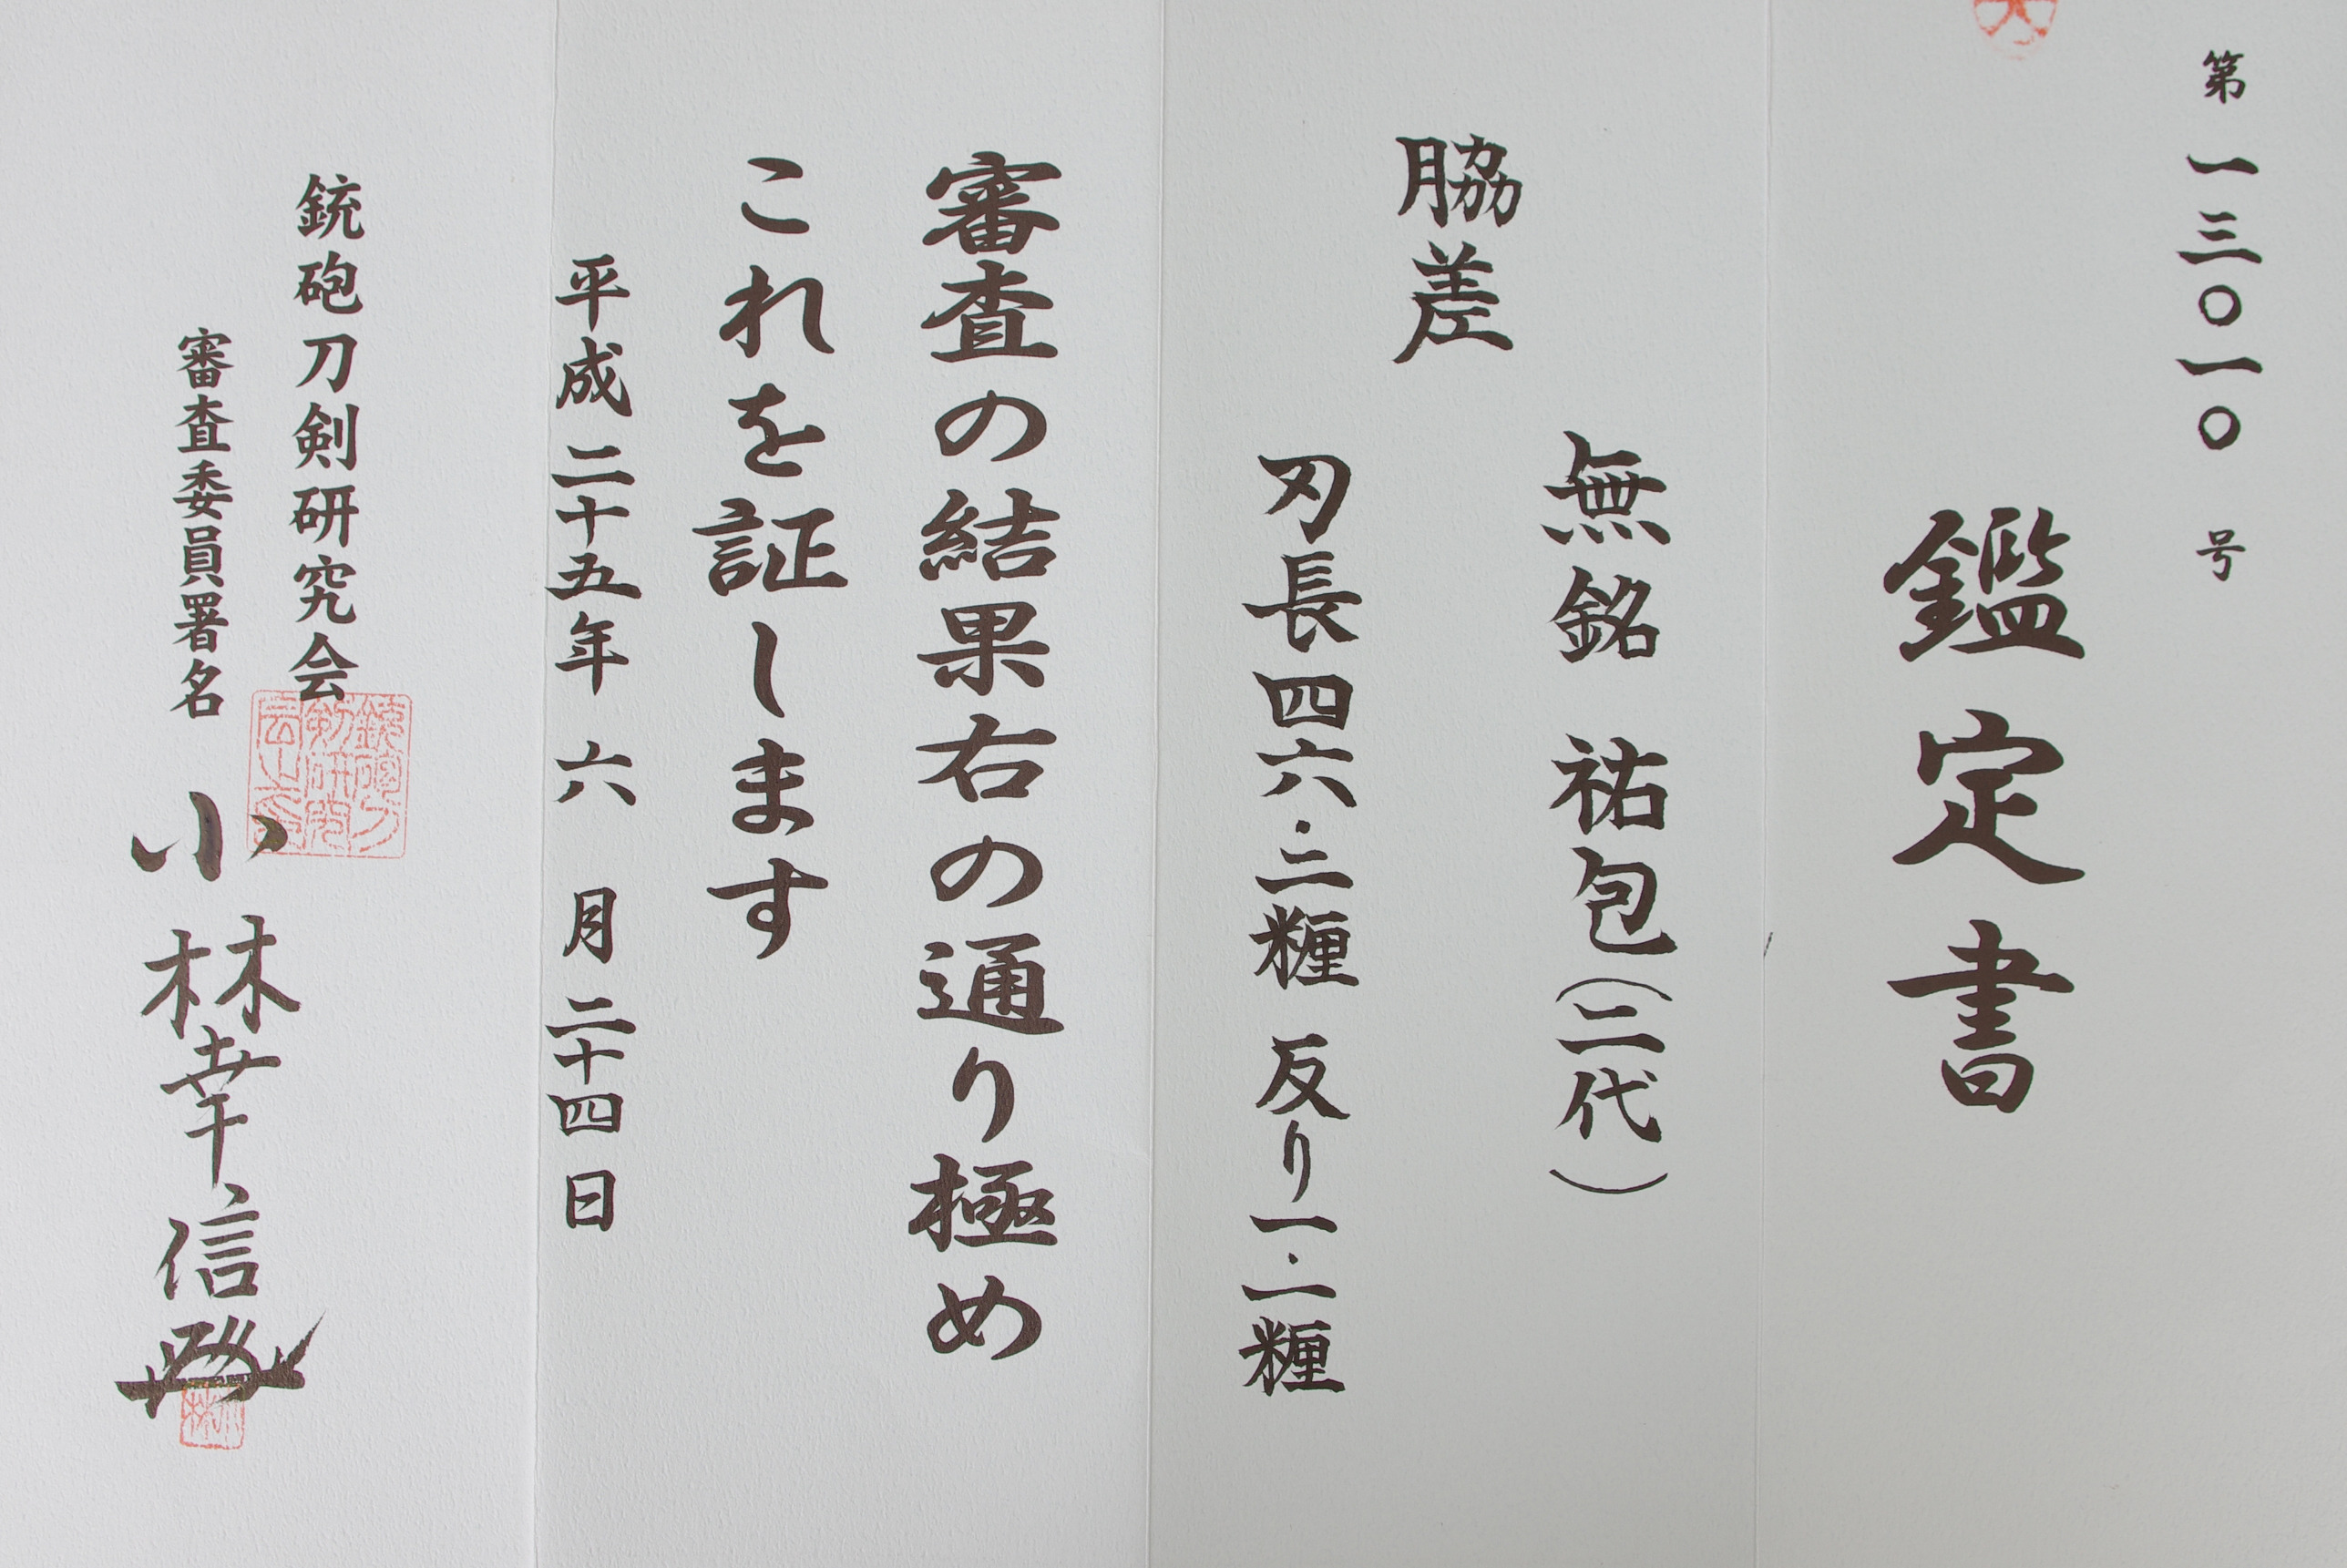 第一三〇一〇号
鑑定書
無銘 祐包(二代)
脇差
刃長四六・二糎 反り一・二糎
審査の結果右の通り極め
これを証します
平成二十五年 六 月二十四日
銃砲刀剣研究会
審査委員署名
小林幸信